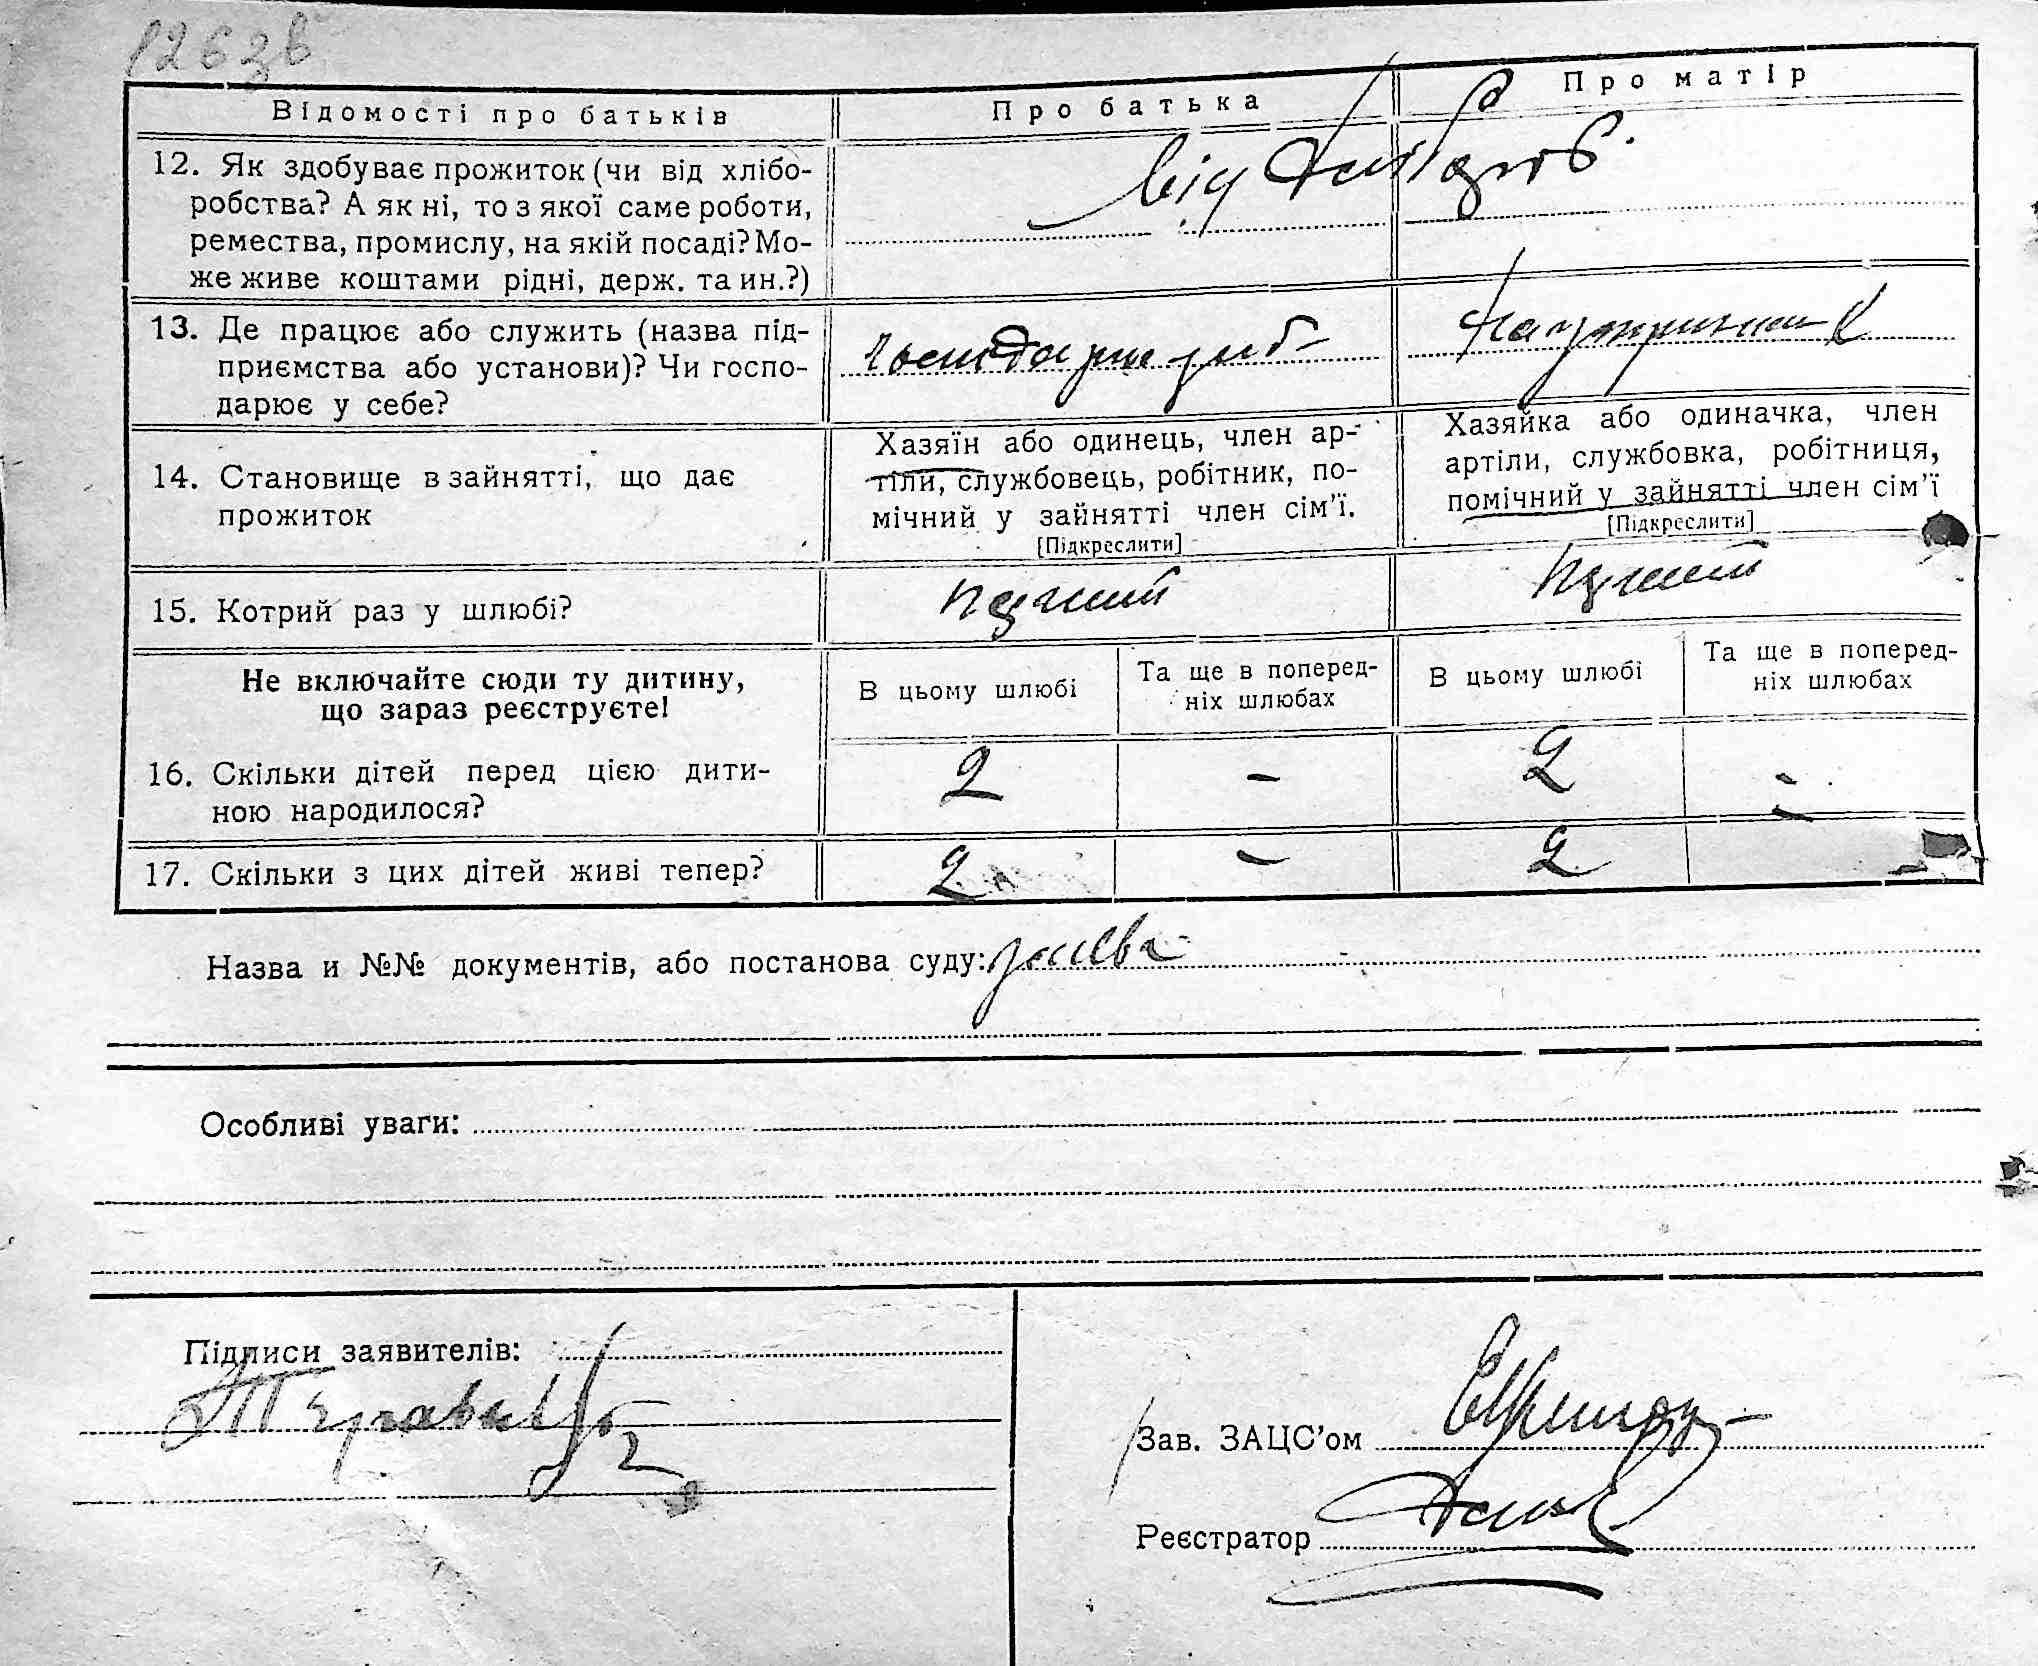 126зв
Відомості про батьків
Про батька
Про матір
12. Як здобуває прожиток (чи від хлібо-
робства? А як ні, то з якої саме роботи,
ремества, промислу, на якій посаді? Мо-
же живе коштами рідні, держ. та ин.?)
від хлібороб.
13. Де працює або служить (назва під-
приємства або установи)? Чи госпо-
дарює у себе?
14. Становище в зайнятті, що дає
прожиток
Хазяїн або одинець, член ар-
тіли, службовець, робітник, по-
мічний у зайнятті член сім’ї.
[Підкреслити]
Хазяйка або одиначка, член
артіли, службовка, робітниця,
помічний у зайнятті член сім’ї
[Підкреслити]
15. Котрий раз у шлюбі?
Не включайте сюди ту дитину,
що зараз реєструєте!
В цьому шлюбі
Та ще в поперед-
ніх шлюбах
В цьому шлюбі
Та ще в поперед-
ніх шлюбах
16. Скільки дітей перед цією дити-
ною народилося?
2 - 2 -
17. Скільки з цих дітей живі тепер?
2 - 2 -
Назва и №№ документів, або постанова суду:
Особливі уваги:
Підписи заявителів:
Зав. ЗАЦС’ом
Реєстратор